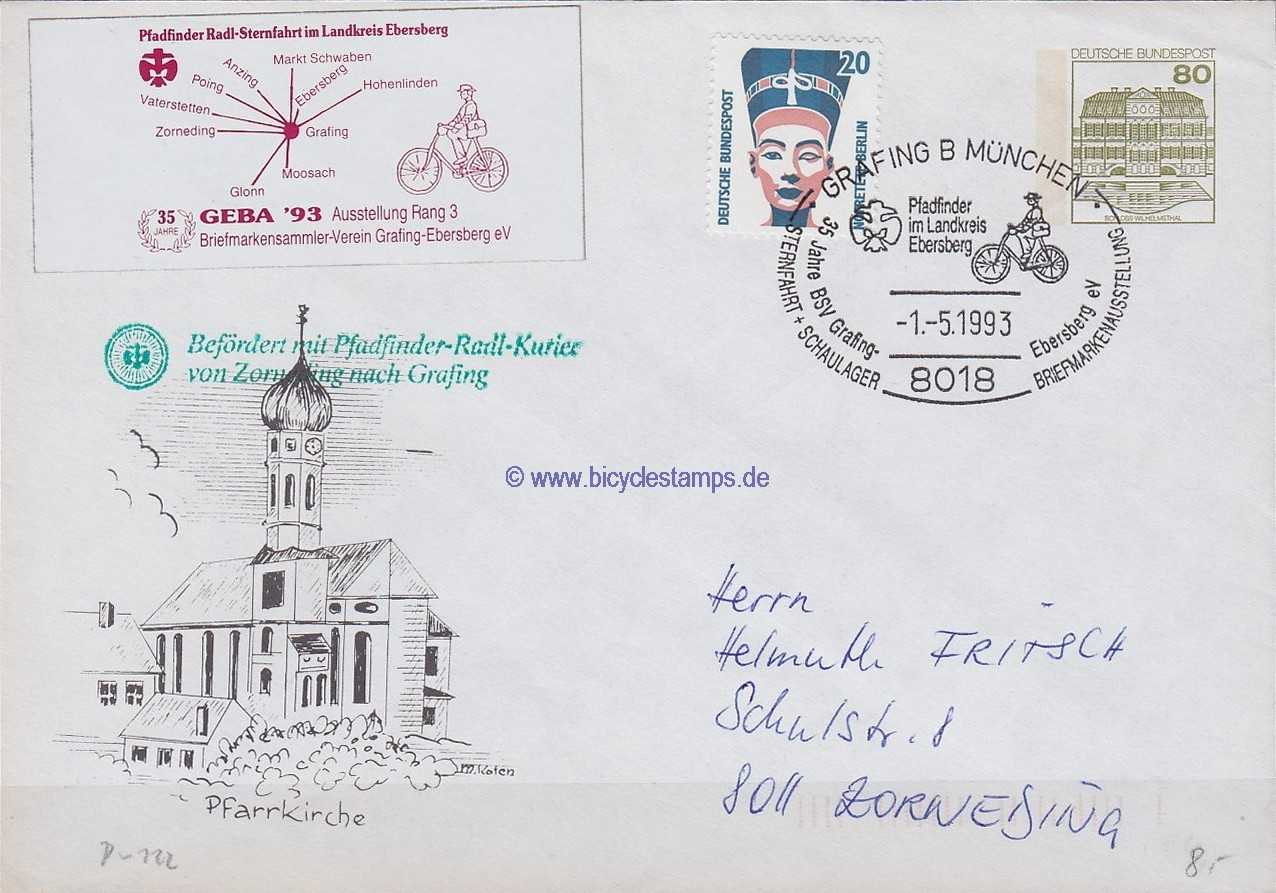 Pfadfinder Radl-Sternfahrt im Landkreis Ebersberg
Markt Schwaben
Anzing
Ebersberg
Poing
Hohenlinden
Vaterstetten
Zorneding
Grafing
Moosach
Glonn
35 JAHRE
GEBA '93 Ausstellung Rang 3
Briefmarkensammler-Verein Grafing-Ebersberg eV
20
DEUTSCHE BUNDESPOST
DEUTSCHE BUNDESPOST
80
SCHLOSS WILHELMSTHAL
· GRAFING B MÜNCHEN ·
Pfadfinder
im Landkreis
Ebersberg
35 Jahre BSV Grafing-
Ebersberg eV
STERNFAHRT + SCHAULAGER
BRIEFMARKENAUSSTELLUNG
-1.-5.1993
8018
Befördert mit Pfadfinder-Radl-Kurier
von Zorneding nach Grafing
© www.bicyclestamps.de
Herrn
Helmuth FRITSCH
Schulstr. 8
8011 ZORNEDING
M. Kofen
Pfarrkirche
8,-